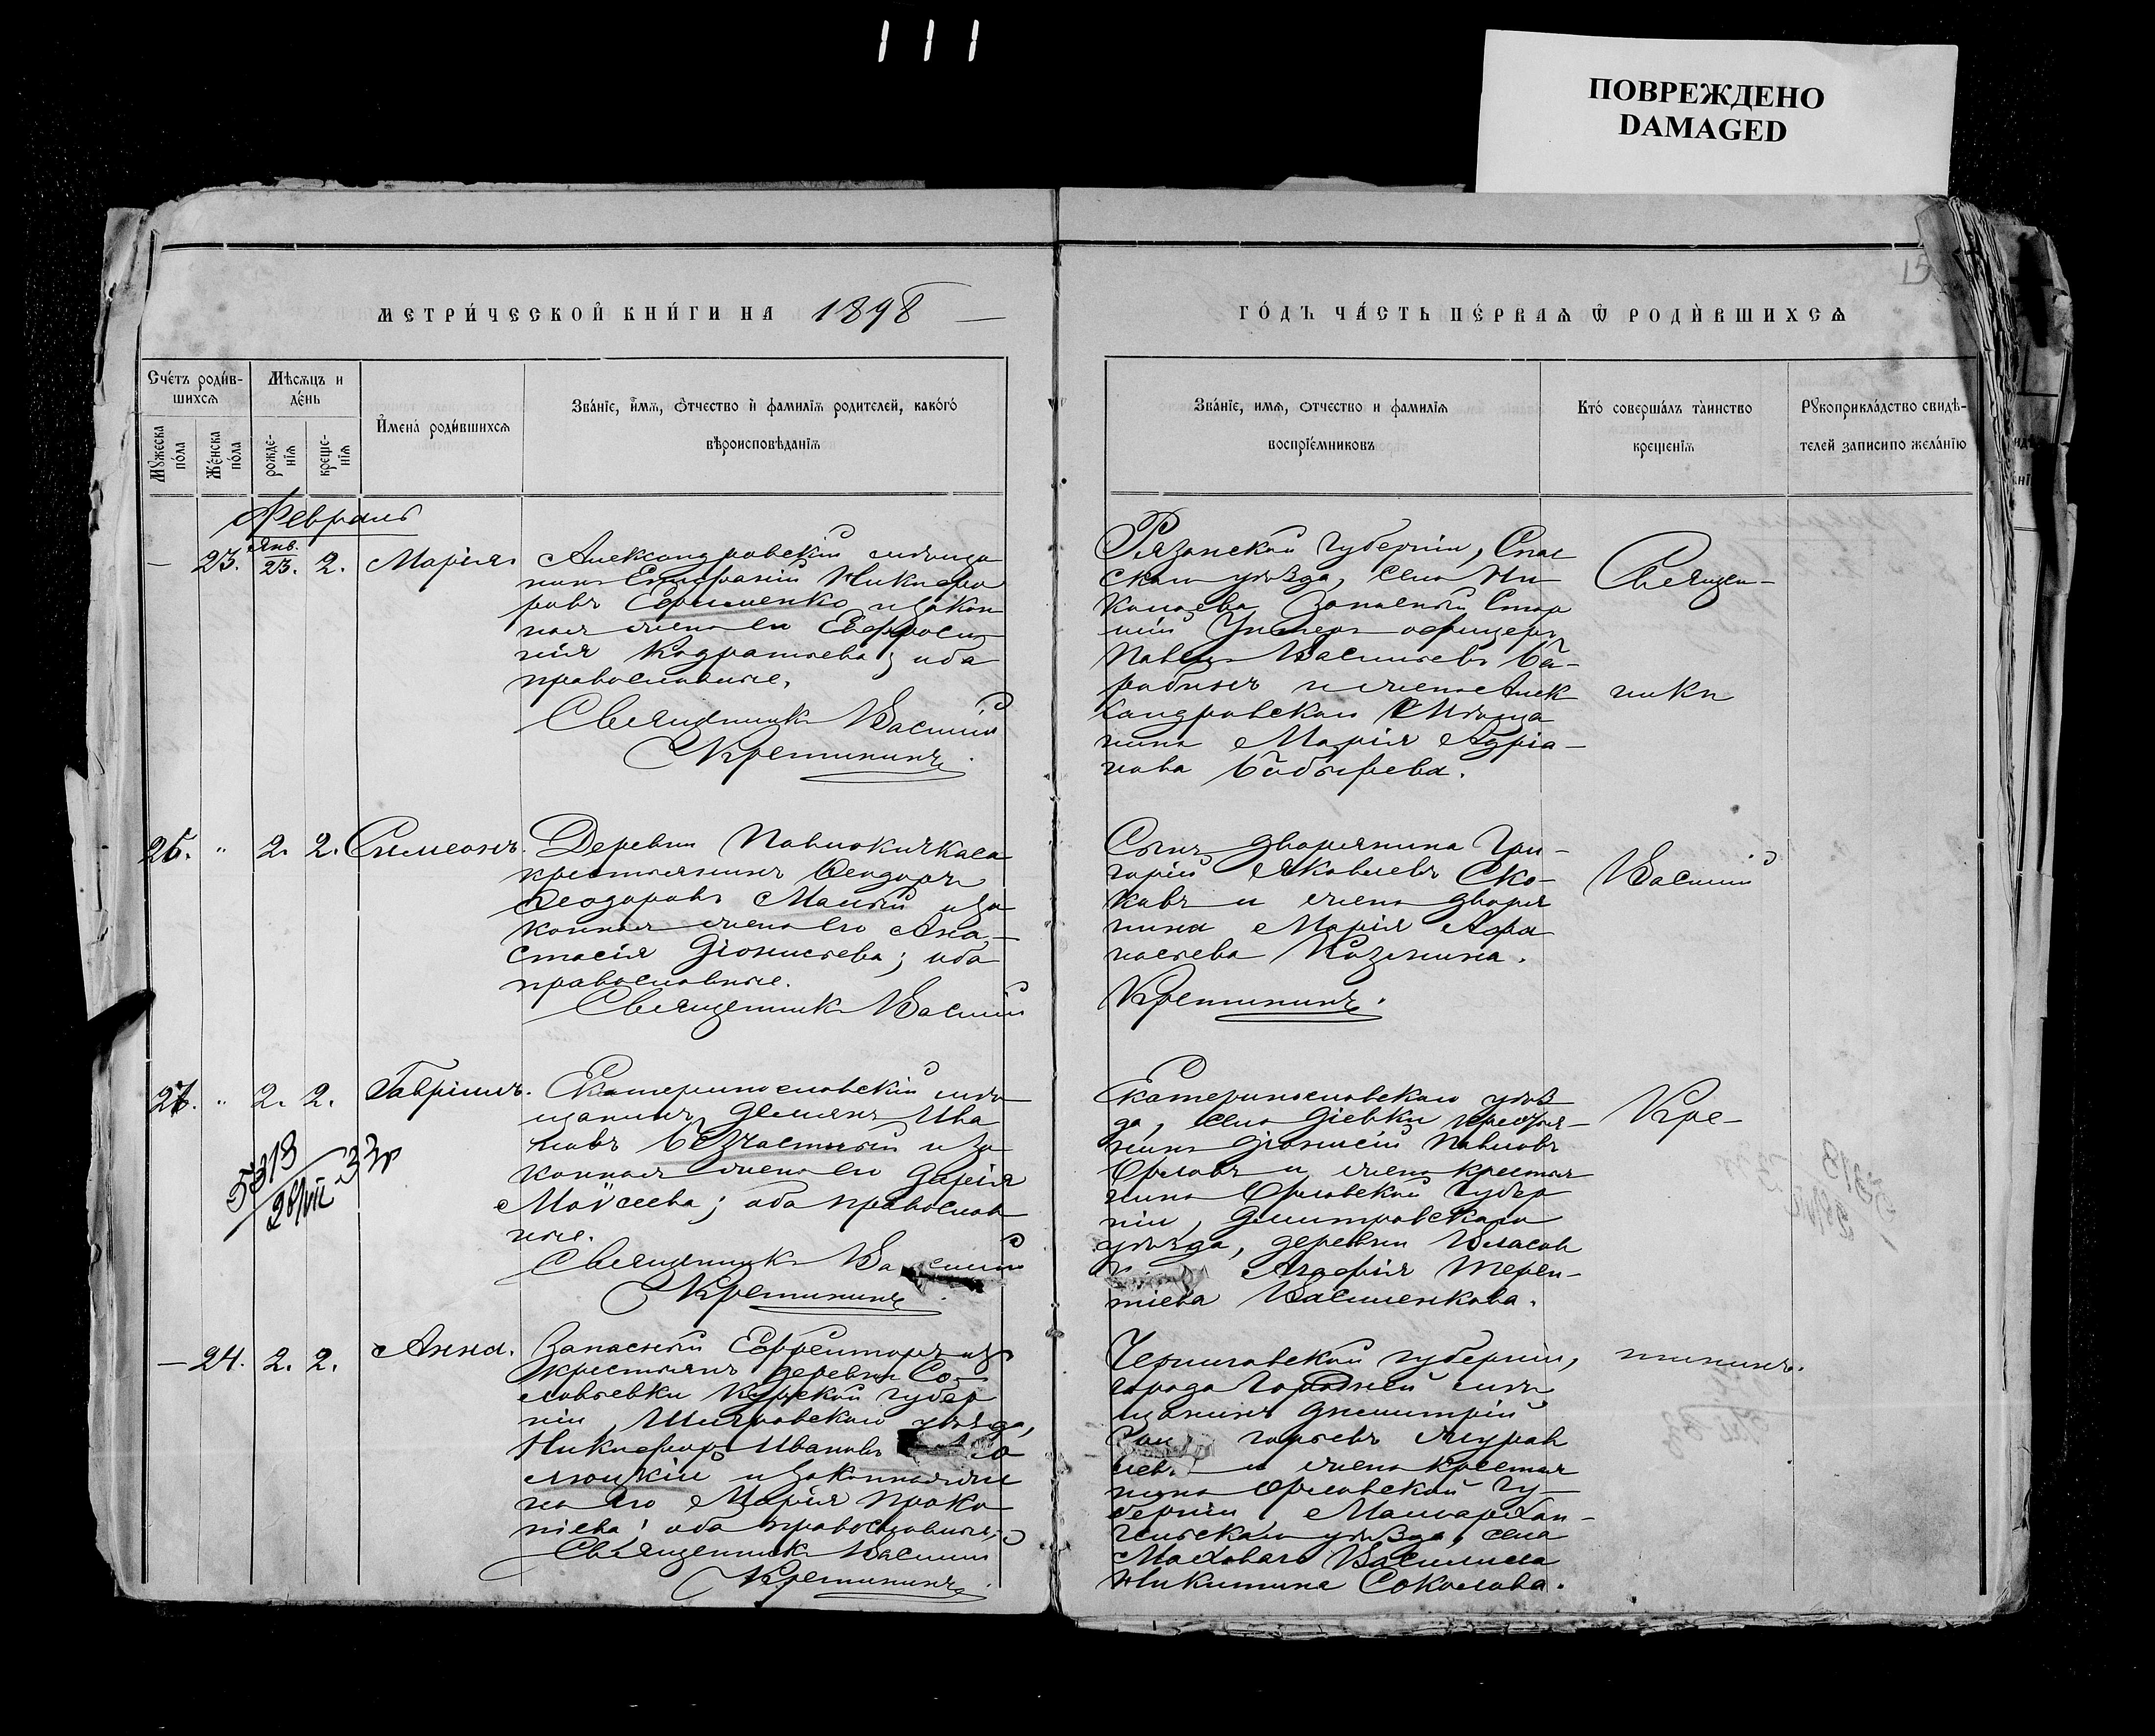 111
ПОВРЕЖДЕНО
DAMAGED
15
МЕТРИ́ЧЕСКОЙ КНИ́ГИ НА 1898
ГО́ДЪ ЧА́СТЬ ПЕ́РВАѦ Ѿ РОДИ́ВШИХСѦ
Сче́тъ роди́в-
шихсѧ
Мѣсѧцъ и
де́нь
Мꙋжеска
по́ла
Же́нска
по́ла
рожде-
нїѧ
креще-
нїѧ
И҆мена̀ роди́вшихсѧ
Зва́нїе, и҆́мѧ, ѻ҆́тчество и҆ фамилїѧ родителей, како́гѡ
вѣроисповѣ́данїѧ
Зва́нїе, имѧ, ѻтчество и фамилїѧ
воспрїе́мниковъ
Кто̀ соверша́лъ та́инство
креще́нїѧ
Рꙋкоприкла́дство свидѣ́-
телей записи по жела́нїю
Февраль
— 23. Янв. 23. 2. Марія
Александровскій мѣща
нинъ Епифаній Никифо
ровъ Ефименко и закон
ная жена его Евфроси
нія Кодратьева; оба
православные.
Священникъ Василій
Кретининъ.
Рязанской губерніи, Спас
скаго уѣзда, села Ни
колаева запасный Стар
шій Унтеръ-офицеръ
Павелъ Васильевъ
и жена Алек
сандровскаго Мѣща
нина Марія Адріа
нова Бобырева.
Священ-
ники
25. " 2. 2. Симеонъ.
Деревни Павлокичкаса
крестьянинъ Ѳеодоръ
Ѳеодоровъ Малый и за
конная жена его Ана-
стасія Діонисьева; оба
православные.
Священникъ Василій
Кретининъ.
Сынъ дворянина Гри-
горій Яковлевъ Ско-
ковъ и жена дворя
нина Марія Аѳа
насьева Козинина.
Василій
26. " 2. 2. Гавріилъ.
5313
Екатеринославскій мѣ
щанинъ Демьянъ Ива
новъ Безчастный и за
конная жена его Дарія
Моѵсеева; оба православ
ные.
Священникъ Василій
Кретининъ.
Екатеринославскаго уѣз
да, села Діевки крестья-
нинъ Діонисій Павловъ
Орловъ и жена крестья
нина Орловской губер
ніи, Дмитровскаго
уѣзда, деревни Власов
Агафія Терен-
тіева Василенкова.
Кре-
— 24. 2. 2. Анна.
Запасный Ефрейторъ изъ
крестьянъ деревни Со-
ловьевки Курской губер
ніи, Щигровскаго уѣзда,
Никифоръ Ивановъ
и законная же
на его Марія Проко-
піева; оба православные.
Священникъ Василій
Кретининъ.
Черниговской губерніи,
города Городней мѣ
щанинъ Димитрій
Григорьевъ Журав
левъ и жена крестья
нина Орловской гу-
берніи, Малоархан-
гельскаго уѣзда, села
Маховаго Василиса
Никитина Соколова.
тининъ.